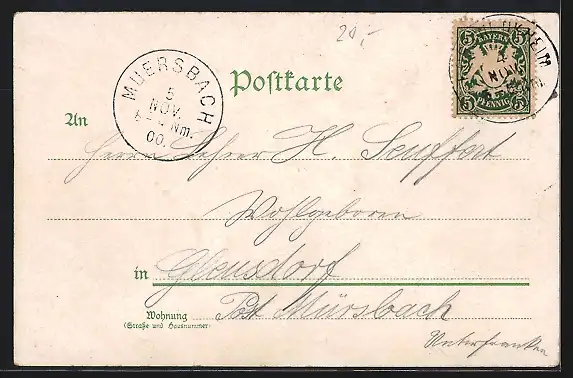 20,-
BAYERN
5 5
PFENNIG
5 5
4
NOV.
MUERSBACH
5
NOV.
Nm.
00.
Postkarte
An
Herrn Lehrer H. Seuffert
Wohlgeboren
in Gleusdorf
Wohnung
(Straße und Hausnummer)
Post Mürsbach
Unterfranken